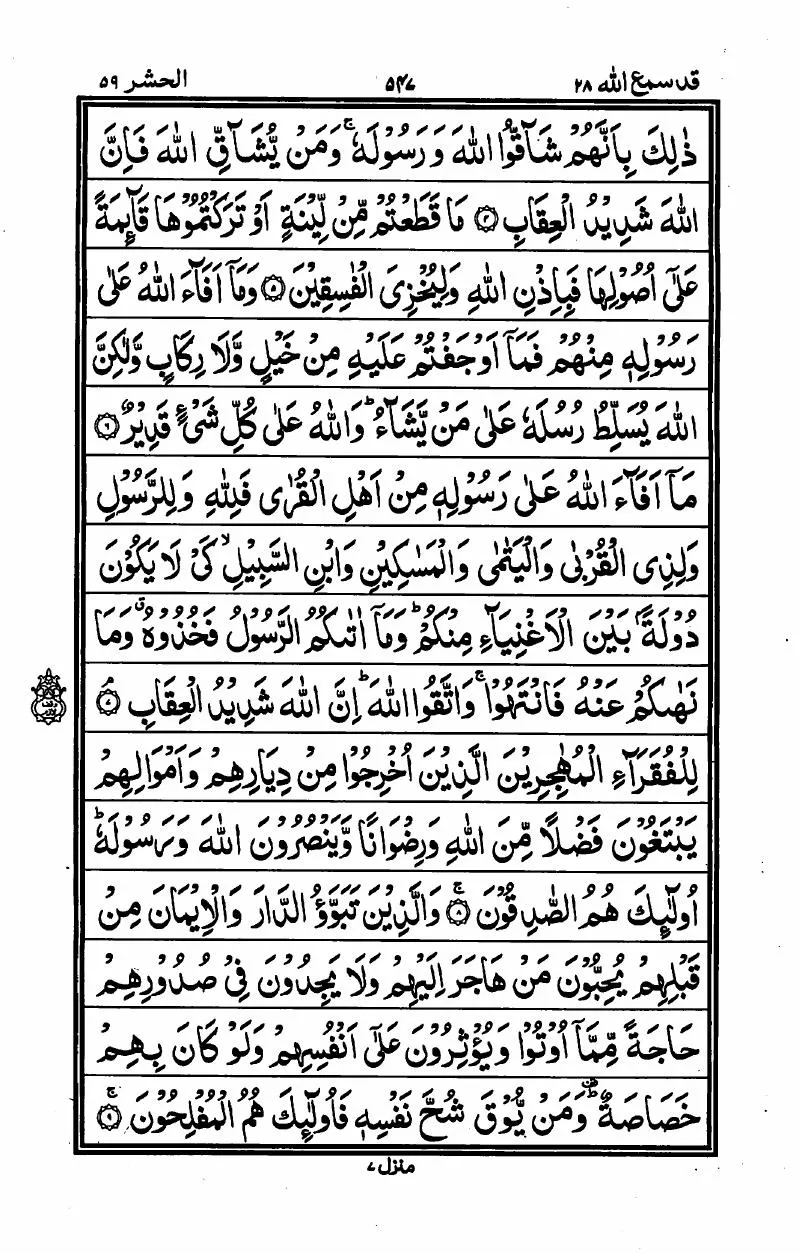 قد سمع الله ٢٨
٥٤٧
الحشر ٥٩
ذٰلِكَ بِاَنَّهُمْ شَآقُّوا اللّٰهَ وَ رَسُوْلَهٗ ۚ وَمَنْ يُّشَآقِّ اللّٰهَ فَاِنَّ
اللّٰهَ شَدِيْدُ الْعِقَابِ ۝۴ مَا قَطَعْتُمْ مِّنْ لِّيْنَةٍ اَوْ تَرَكْتُمُوْهَا قَآئِمَةً
عَلٰٓى اُصُوْلِهَا فَبِاِذْنِ اللّٰهِ وَلِيُخْزِىَ الْفٰسِقِيْنَ ۝۵ وَمَآ اَفَآءَ اللّٰهُ عَلٰى
رَسُوْلِهٖ مِنْهُمْ فَمَآ اَوْجَفْتُمْ عَلَيْهِ مِنْ خَيْلٍ وَّلَا رِكَابٍ وَّلٰكِنَّ
اللّٰهَ يُسَلِّطُ رُسُلَهٗ عَلٰى مَنْ يَّشَآءُ ؕ وَاللّٰهُ عَلٰى كُلِّ شَىْءٍ قَدِيْرٌ ۝۶
مَآ اَفَآءَ اللّٰهُ عَلٰى رَسُوْلِهٖ مِنْ اَهْلِ الْقُرٰى فَلِلّٰهِ وَلِلرَّسُوْلِ
وَلِذِى الْقُرْبٰى وَالْيَتٰمٰى وَالْمَسٰكِيْنِ وَابْنِ السَّبِيْلِ ۙ كَىْ لَا يَكُوْنَ
دُوْلَةًۢ بَيْنَ الْاَغْنِيَآءِ مِنْكُمْ ؕ وَمَآ اٰتٰىكُمُ الرَّسُوْلُ فَخُذُوْهُ ۗ وَمَا
نَهٰىكُمْ عَنْهُ فَانْتَهُوْا ۚ وَاتَّقُوا اللّٰهَ ؕ اِنَّ اللّٰهَ شَدِيْدُ الْعِقَابِ ۝۷
لِلْفُقَرَآءِ الْمُهٰجِرِيْنَ الَّذِيْنَ اُخْرِجُوْا مِنْ دِيَارِهِمْ وَاَمْوَالِهِمْ
يَبْتَغُوْنَ فَضْلًا مِّنَ اللّٰهِ وَرِضْوَانًا وَّيَنْصُرُوْنَ اللّٰهَ وَرَسُوْلَهٗ ؕ
اُولٰٓئِكَ هُمُ الصّٰدِقُوْنَ ۝۸ ۚ وَالَّذِيْنَ تَبَوَّؤُ الدَّارَ وَالْاِيْمَانَ مِنْ
قَبْلِهِمْ يُحِبُّوْنَ مَنْ هَاجَرَ اِلَيْهِمْ وَلَا يَجِدُوْنَ فِىْ صُدُوْرِهِمْ
حَاجَةً مِّمَّآ اُوْتُوْا وَيُؤْثِرُوْنَ عَلٰٓى اَنْفُسِهِمْ وَلَوْ كَانَ بِهِمْ
خَصَاصَةٌ ؕ وَمَنْ يُّوْقَ شُحَّ نَفْسِهٖ فَاُولٰٓئِكَ هُمُ الْمُفْلِحُوْنَ ۝۹ ۚ
منزل ٧